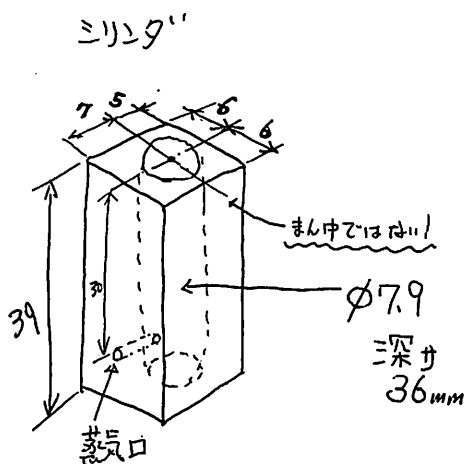 シリンダ
7
5
6
6
まん中ではない!
39
30
φ7.9
深サ
36mm
蒸気口